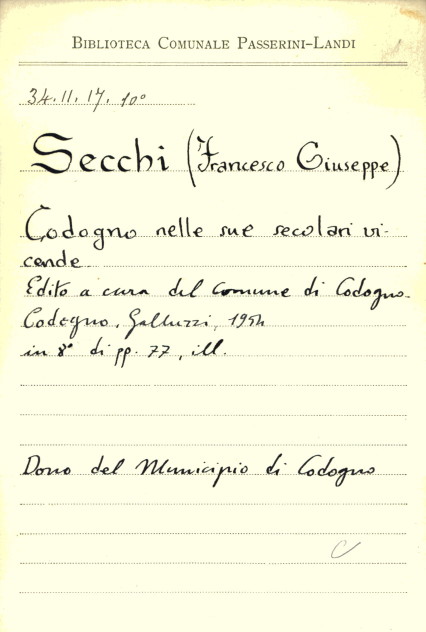 BIBLIOTECA COMUNALE PASSERINI-LANDI
34.II.17.10°
Secchi (Francesco Giuseppe)
Codogno nelle sue secolari vi-
cende
Edito a cura del comune di Codogno.
Codogno, Galluzzi, 1954
in 8° di pp. 77, ill.
Dono del Municipio di Codogno
C